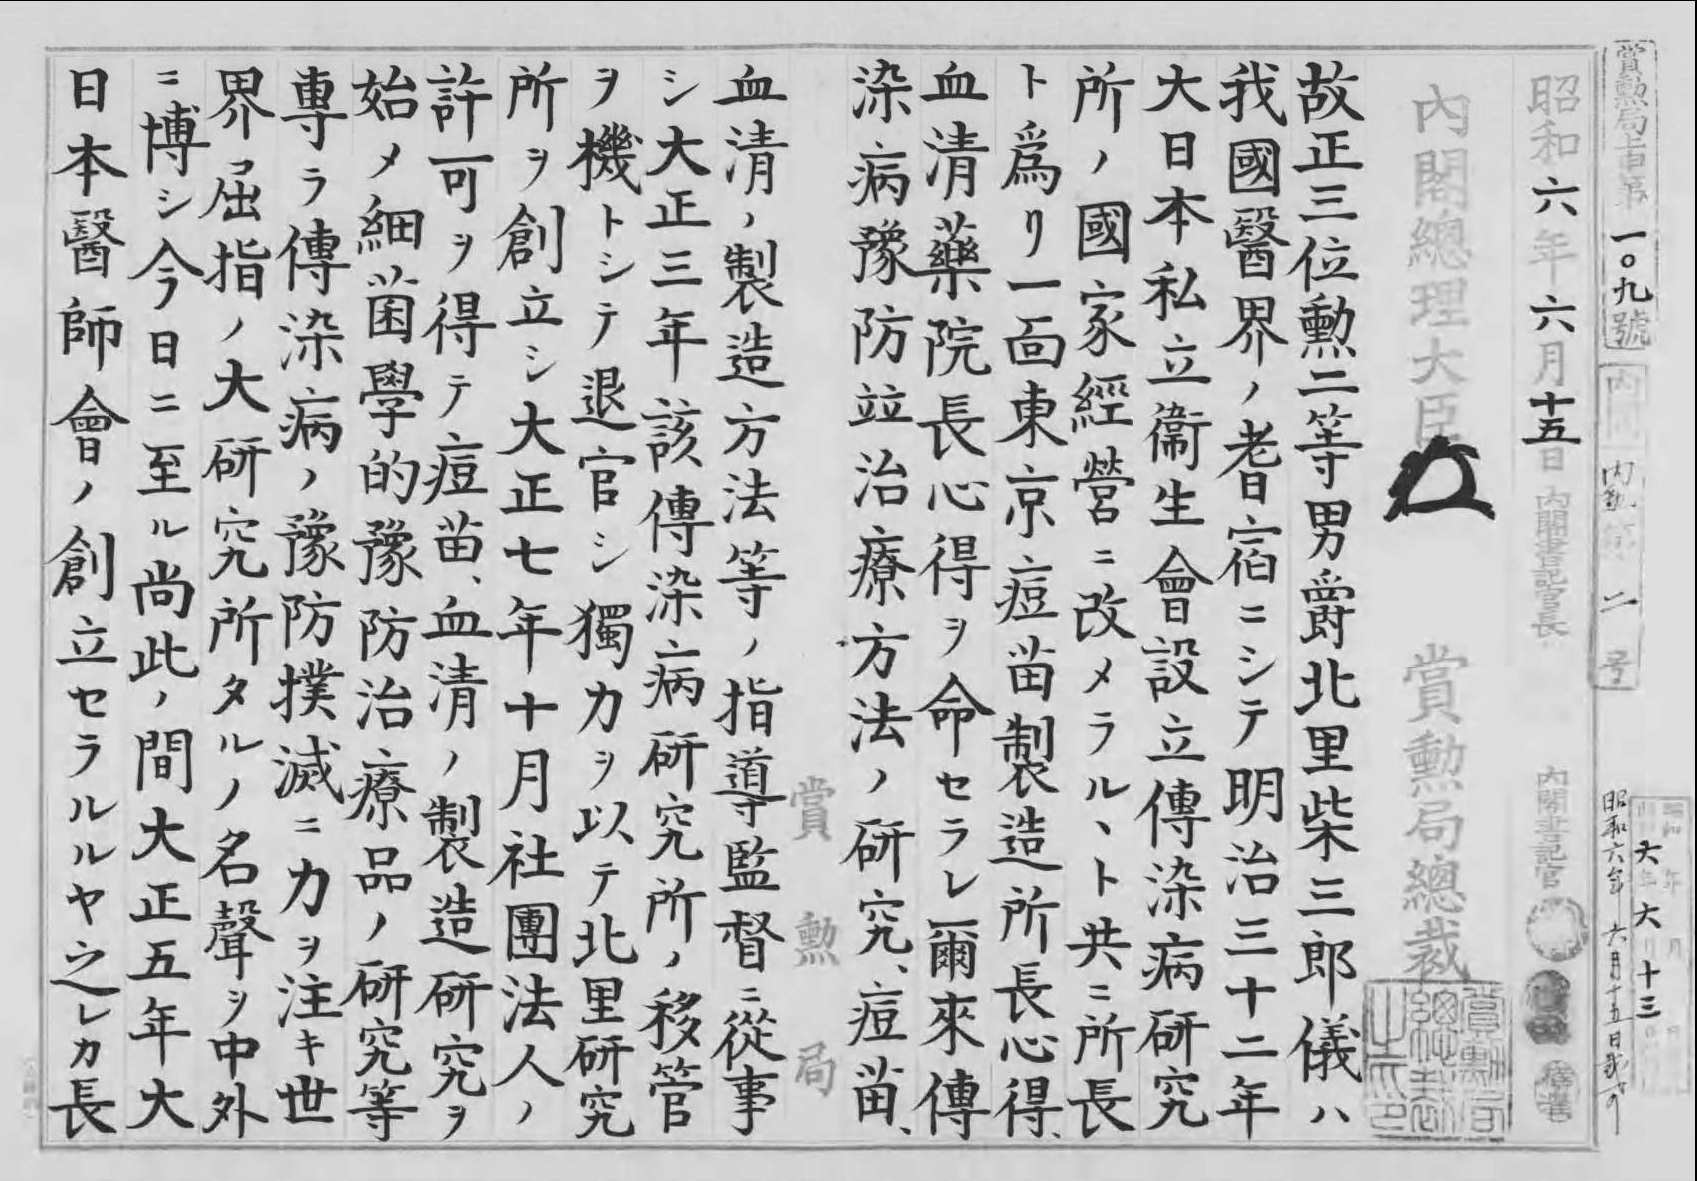 賞勲局上首第一〇九號
昭和六年六月十五日
內閣書記官長
內閣書記官
內閣總理大臣
賞勳局總裁
故正三位勲二等男爵北里柴三郎儀ハ
我國醫界ノ耆宿ニシテ明治三十二年
大日本私立衞生會設立傳染病硏究
所ノ國家經營ニ改メラルヽト共ニ所長
ト爲リ一面東京痘苗製造所長心得、
血清藥院長心得ヲ命セラレ爾來傳
染病豫防竝治療方法ノ硏究、痘苗、
賞勳局
血清ノ製造方法等ノ指導監督ニ從事
シ大正三年該傳染病硏究所ノ移管
ヲ機トシテ退官シ獨力ヲ以テ北里硏究
所ヲ創立シ大正七年十月社團法人ノ
許可ヲ得テ痘苗、血清ノ製造硏究ヲ
始メ細菌學的豫防治療品ノ硏究等
專ラ傳染病ノ豫防撲滅ニ力ヲ注キ世
界ヨ屈指ノ大硏究所タルノ名聲ヲ中外
ニ博シ今日ニ至ル尚此ノ間大正五年大
日本醫師會ノ創立セラルルヤ之レカ長